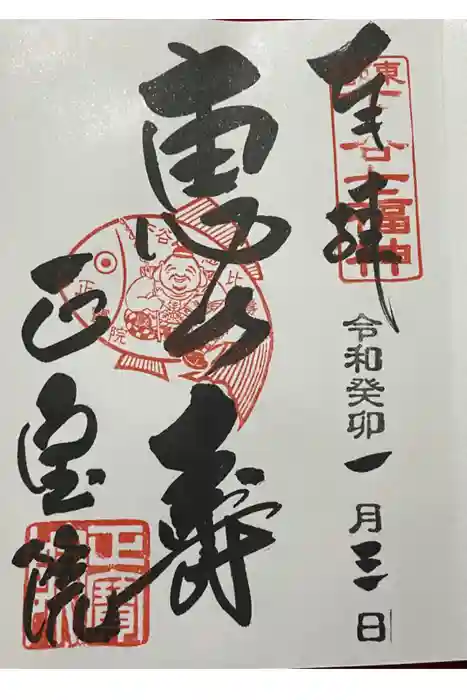 奉拝
東京下谷七福神
令和癸卯一月三日
恵比寿
正宝院
正寶